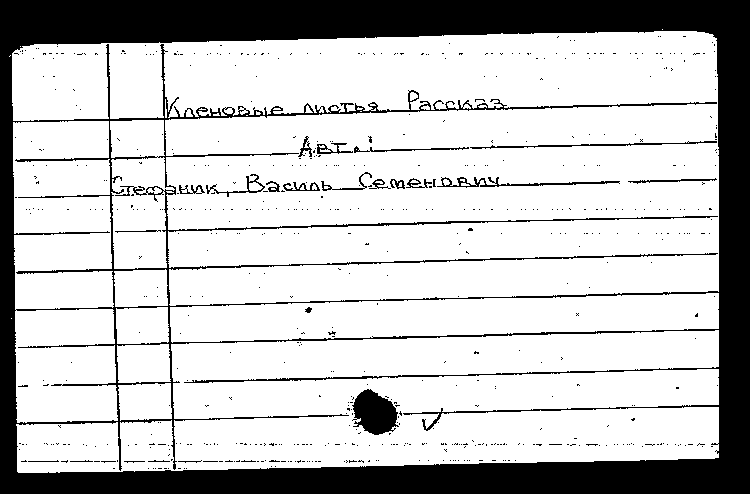 Кленовые листья. Рассказ
Авт.:
Стефаник, Василь Семенович